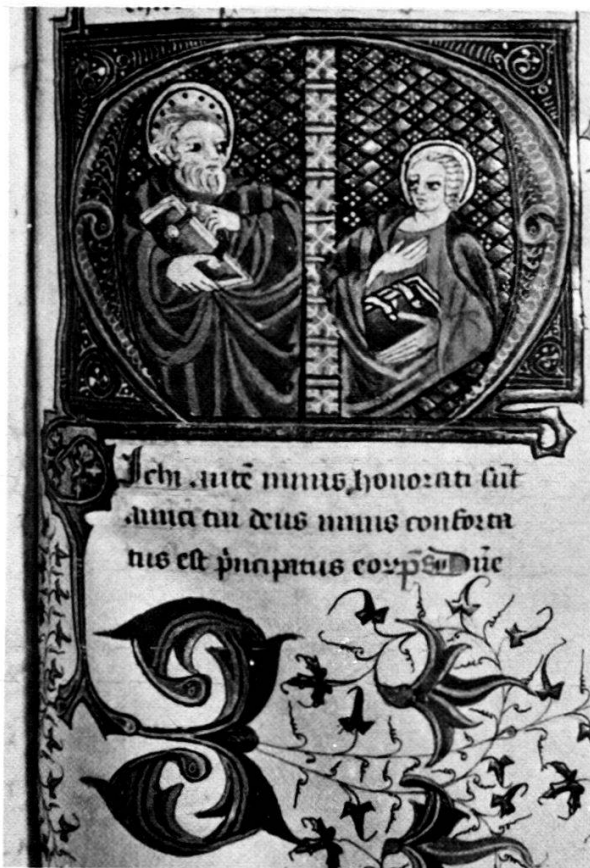 Ichi autē nimis honorati sūt
amici tui deus nimis conforta
tus est p̄ncipatus eorū Dn̄e